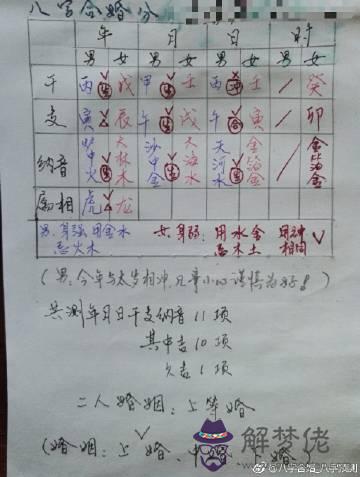 八字合婚分
年 月 日 时
男 女 男 女 男 女 男 女
干 丙 生 戊 甲 生 壬 丙 冲 壬 / 癸
支 寅 辰 午 合 戌 午 合 寅 / 卯
纳音 炉中火 生 大林木 沙中金 生 大海水 天河水 生 金箔金 / 金箔金
属相 虎 龙
男:身强 用金水 忌火木 女:身弱:用水金 忌木土 用神相同 √
(男:今年与太岁相冲,凡事小心谨慎为好!)
共测年月日干支纳音11项
其中吉10项
欠吉1项
二人婚姻:上等婚
(婚姻:上√、中 上婚)
解梦佬
@八字合婚_八字预测